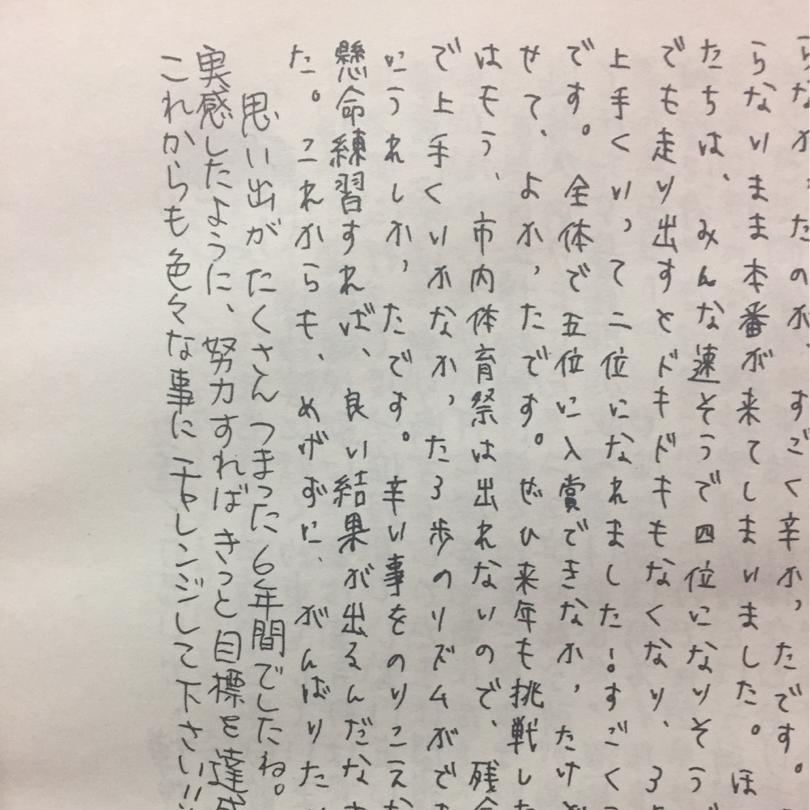 らなかったのが、すごく辛かったです。
らないまま本番が来てしまいました。ほ
たちは、みんな速そうで四位になりそう
でも走り出すとドキドキもなくなり、3
上手くいって二位になれました!すごく
です。全体で五位に入賞できなかったけ
せて、よかったです。ぜひ来年も挑戦し
はもう、市内体育祭は出れないので、残
で上手くいかなかった3歩のリズムがで
にうれしかったです。辛い事をのりこえ
懸命練習すれば、良い結果が出るんだな
た。これからも、めげずに、がんばりた
思い出がたくさんつまった6年間でしたね。
実感したように、努力すればきっと目標を達成
これからも色々な事にチャレンジして下さい!!